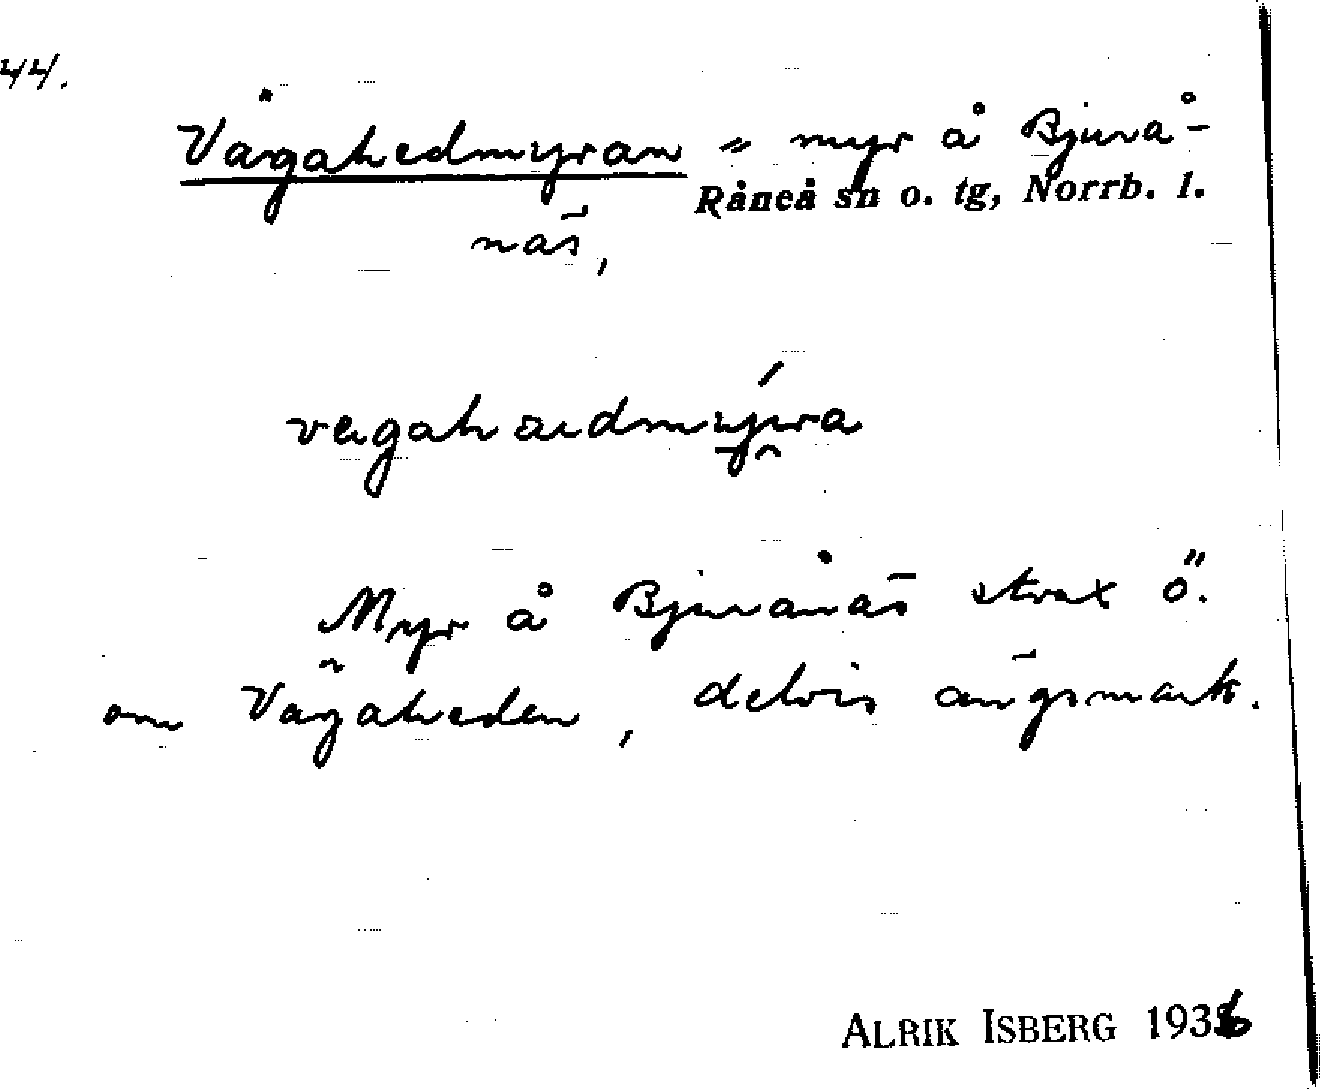 44.
Vågahedmyran = myr å Bjurå-
Råneå sn o. tg, Norrb. l.
näs,
vagahaidmyɪra
Myr å Bjurånäs strax ö.
om Vågaheden, delvis ängsmark.
ALRIK ISBERG 1936